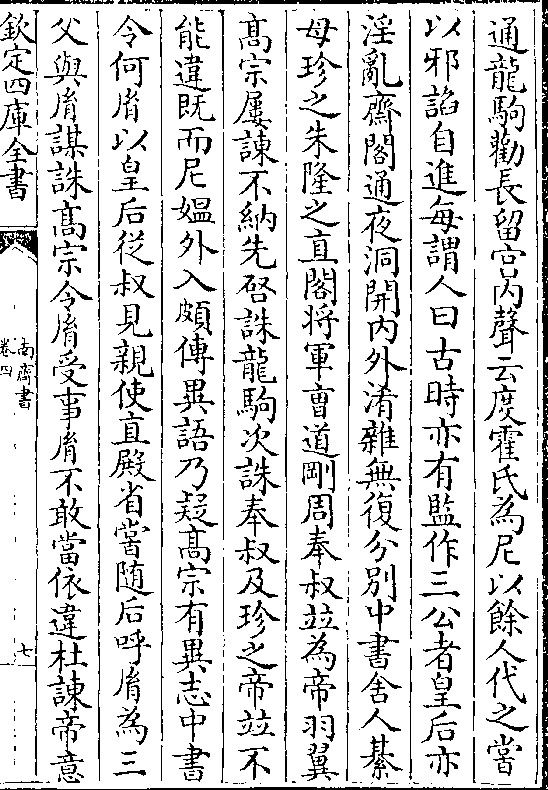 通龍駒勸長留宫内聲云度霍氏為尼以餘人代之嘗
以邪諂自進每謂人曰古時亦有監作三公者皇后亦
淫亂齋閣通夜洞開内外淆雜無復分别中書舍人綦
母珍之朱隆之直閣将軍曹道剛周奉叔竝為帝羽翼
髙宗屢諫不納先啓誅龍駒次誅奉叔及珍之帝竝不
能違既而尼媪外入頗傳異語乃疑髙宗有異志中書
令何㣧以皇后從叔見親使直殿省嘗随后呼㣧為三
父與㣧謀誅髙宗令㣧受事㣧不敢當依違杜諫帝意
欽定四庫全書
南齊書
卷四
七